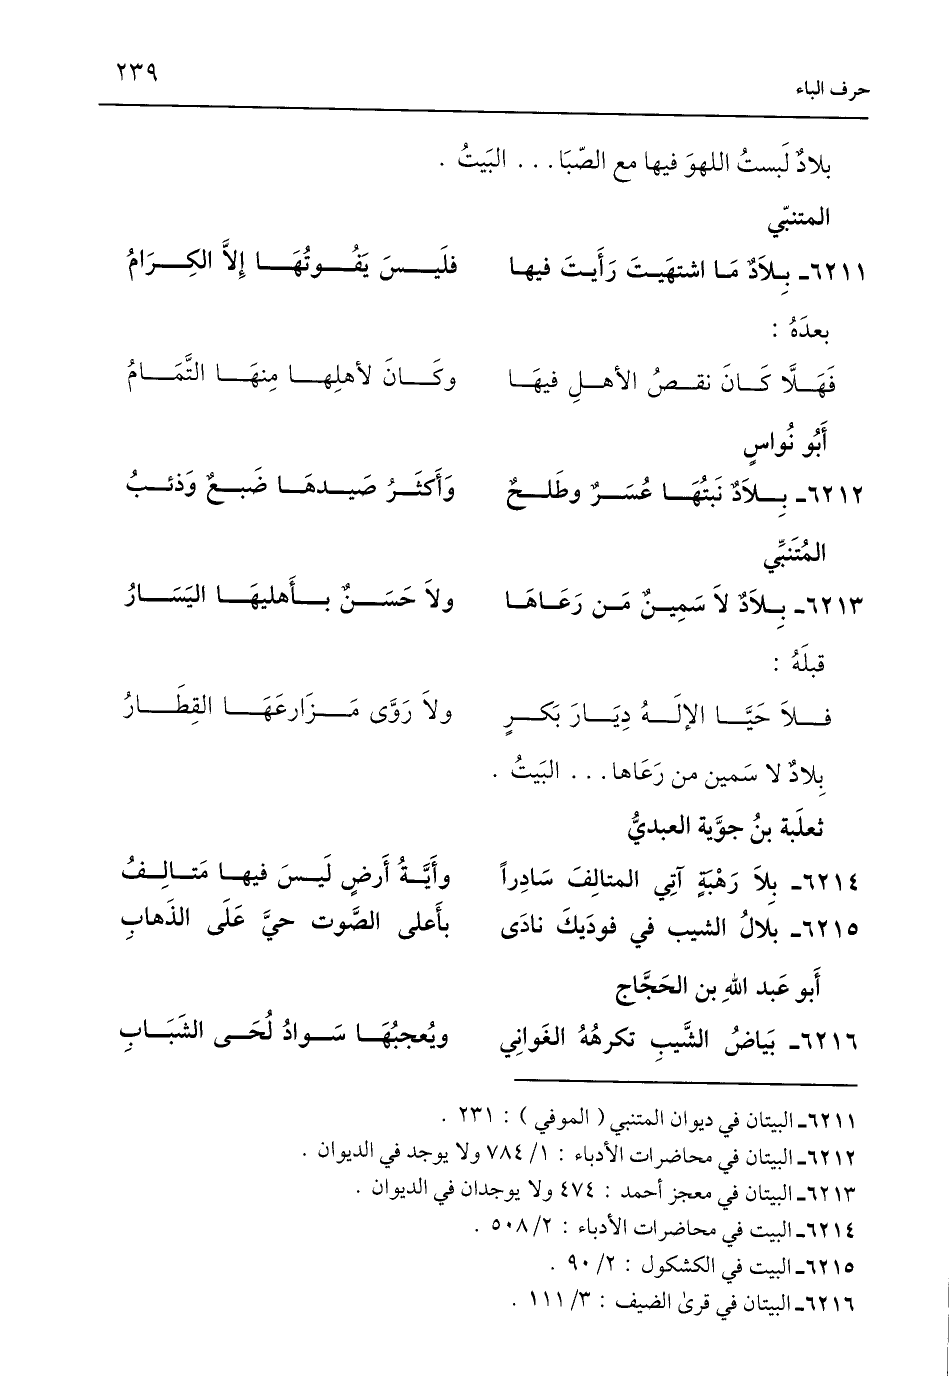 حرف الباء ٢٣٩
بلادٌ لَبستُ اللهوَ فيها مع الصّبَا . . . البَيتُ .
المتنبّي
٦٢١١ـ بِلاَدٌ مَا اشتهَيتَ رَأَيتَ فيها فلَيسَ يَفُوتُهَا إِلاَّ الكِرَامُ
بعدَهُ :
فَهَلَّا كَانَ نقصُ الأهلِ فيهَا وكَانَ لأهلِها مِنهَا التَّمَامُ
أَبُو نُواسٍ
٦٢١٢ـ بِلاَدٌ نَبتُهَا عُسَرٌ وطَلحٌ وَأَكثَرُ صَيدهَا ضَبعٌ وَذئبُ
المُتَنبِّي
٦٢١٣ـ بِلاَدٌ لاَ سَمِينٌ مَن رَعَاهَا ولاَ حَسَنٌ بأَهليهَا اليَسَارُ
قبلَهُ :
فلاَ حَيَّا الإلَهُ دِيَارَ بَكرٍ ولاَ رَوَّى مَزَارعَهَا القِطَارُ
بِلادٌ لا سَمين من رَعَاها . . . البَيتُ .
ثعلَبة بنُ جوَّية العبديُّ
٦٢١٤ـ بِلاَ رَهْبَةٍ آتِي المتالِفَ سَادِراً وأَيَّةُ أَرضٍ لَيسَ فيها مَتَالِفُ
٦٢١٥ـ بلالُ الشيب في فودَيكَ نادَى بأَعلى الصَّوت حيَّ عَلَى الذَهابِ
أَبو عَبد اللهِ بن الحَجَّاج
٦٢١٦ـ بَيَاضُ الشَّيبِ تكرهُهُ الغَوانِي ويُعجبُهَا سَوادُ لُحَى الشَبَابِ
٦٢١١ـ البيتان في ديوان المتنبي ( الموفي ) : ٢٣١ .
٦٢١٢ـ البيتان في محاضرات الأدباء : ١/ ٧٨٤ ولا يوجد في الديوان .
٦٢١٣ـ البيتان في معجز أحمد : ٤٧٤ ولا يوجدان في الديوان .
٦٢١٤ـ البيت في محاضرات الأدباء : ٢/ ٥٠٨ .
٦٢١٥ـ البيت في الكشكول : ٢/ ٩٠ .
٦٢١٦ـ البيتان في قرىٰ الضيف : ٣/ ١١١ .